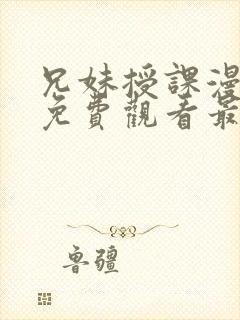 兄妹授課漫
免費觀看最
魯疆